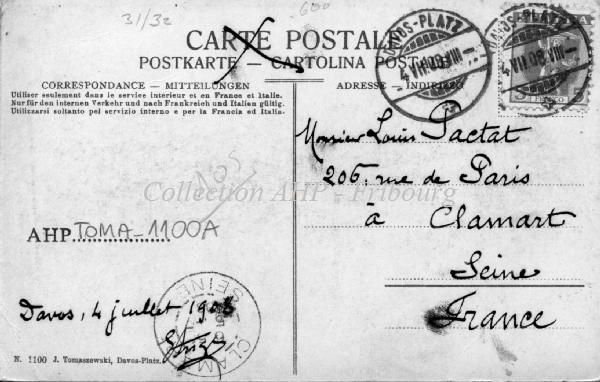 31/32
600
CARTE POSTALE
POSTKARTE — CARTOLINA POSTALE
CORRESPONDANCE — MITTEILUNGEN
Utiliser seulement dans le service intérieur et en France et Italie.
Nur für den internen Verkehr und nach Frankreich und Italien gültig.
Utilizzarsi soltanto pel servizio interno e per la Francia ed Italia.
ADRESSE — INDIRIZZO
DAVOS-PLATZ
4 VII 08 VIII
DAVOS-PLATZ
4 VII 08 VIII
HELVETIA
Monsieur Louis Pactat
206, rue de Paris
à Clamart
Seine
France
Collection AHP - Fribourg
AHP TOMA-1100A
CLAM
SEINE
Davos, 4 juillet 1908
N. 1100 J. Tomaszewski, Davos-Platz.